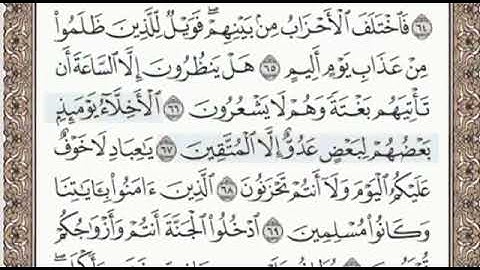 ٦٤ فَٱخۡتَلَفَ ٱلۡأَحۡزَابُ مِنۢ بَيۡنِهِمۡۖ فَوَيۡلٞ لِّلَّذِينَ ظَلَمُواْ
مِنۡ عَذَابِ يَوۡمٍ أَلِيمٍ ٦٥ هَلۡ يَنظُرُونَ إِلَّا ٱلسَّاعَةَ أَن
تَأۡتِيَهُم بَغۡتَةٗ وَهُمۡ لَا يَشۡعُرُونَ ٦٦ ٱلۡأَخِلَّآءُ يَوۡمَئِذِۭ
بَعۡضُهُمۡ لِبَعۡضٍ عَدُوٌّ إِلَّا ٱلۡمُتَّقِينَ ٦٧ يَٰعِبَادِ لَا خَوۡفٌ
عَلَيۡكُمُ ٱلۡيَوۡمَ وَلَآ أَنتُمۡ تَحۡزَنُونَ ٦٨ ٱلَّذِينَ ءَامَنُواْ بِـَٔايَٰتِنَا
وَكَانُواْ مُسۡلِمِينَ ٦٩ ٱدۡخُلُواْ ٱلۡجَنَّةَ أَنتُمۡ وَأَزۡوَٰجُكُمۡ